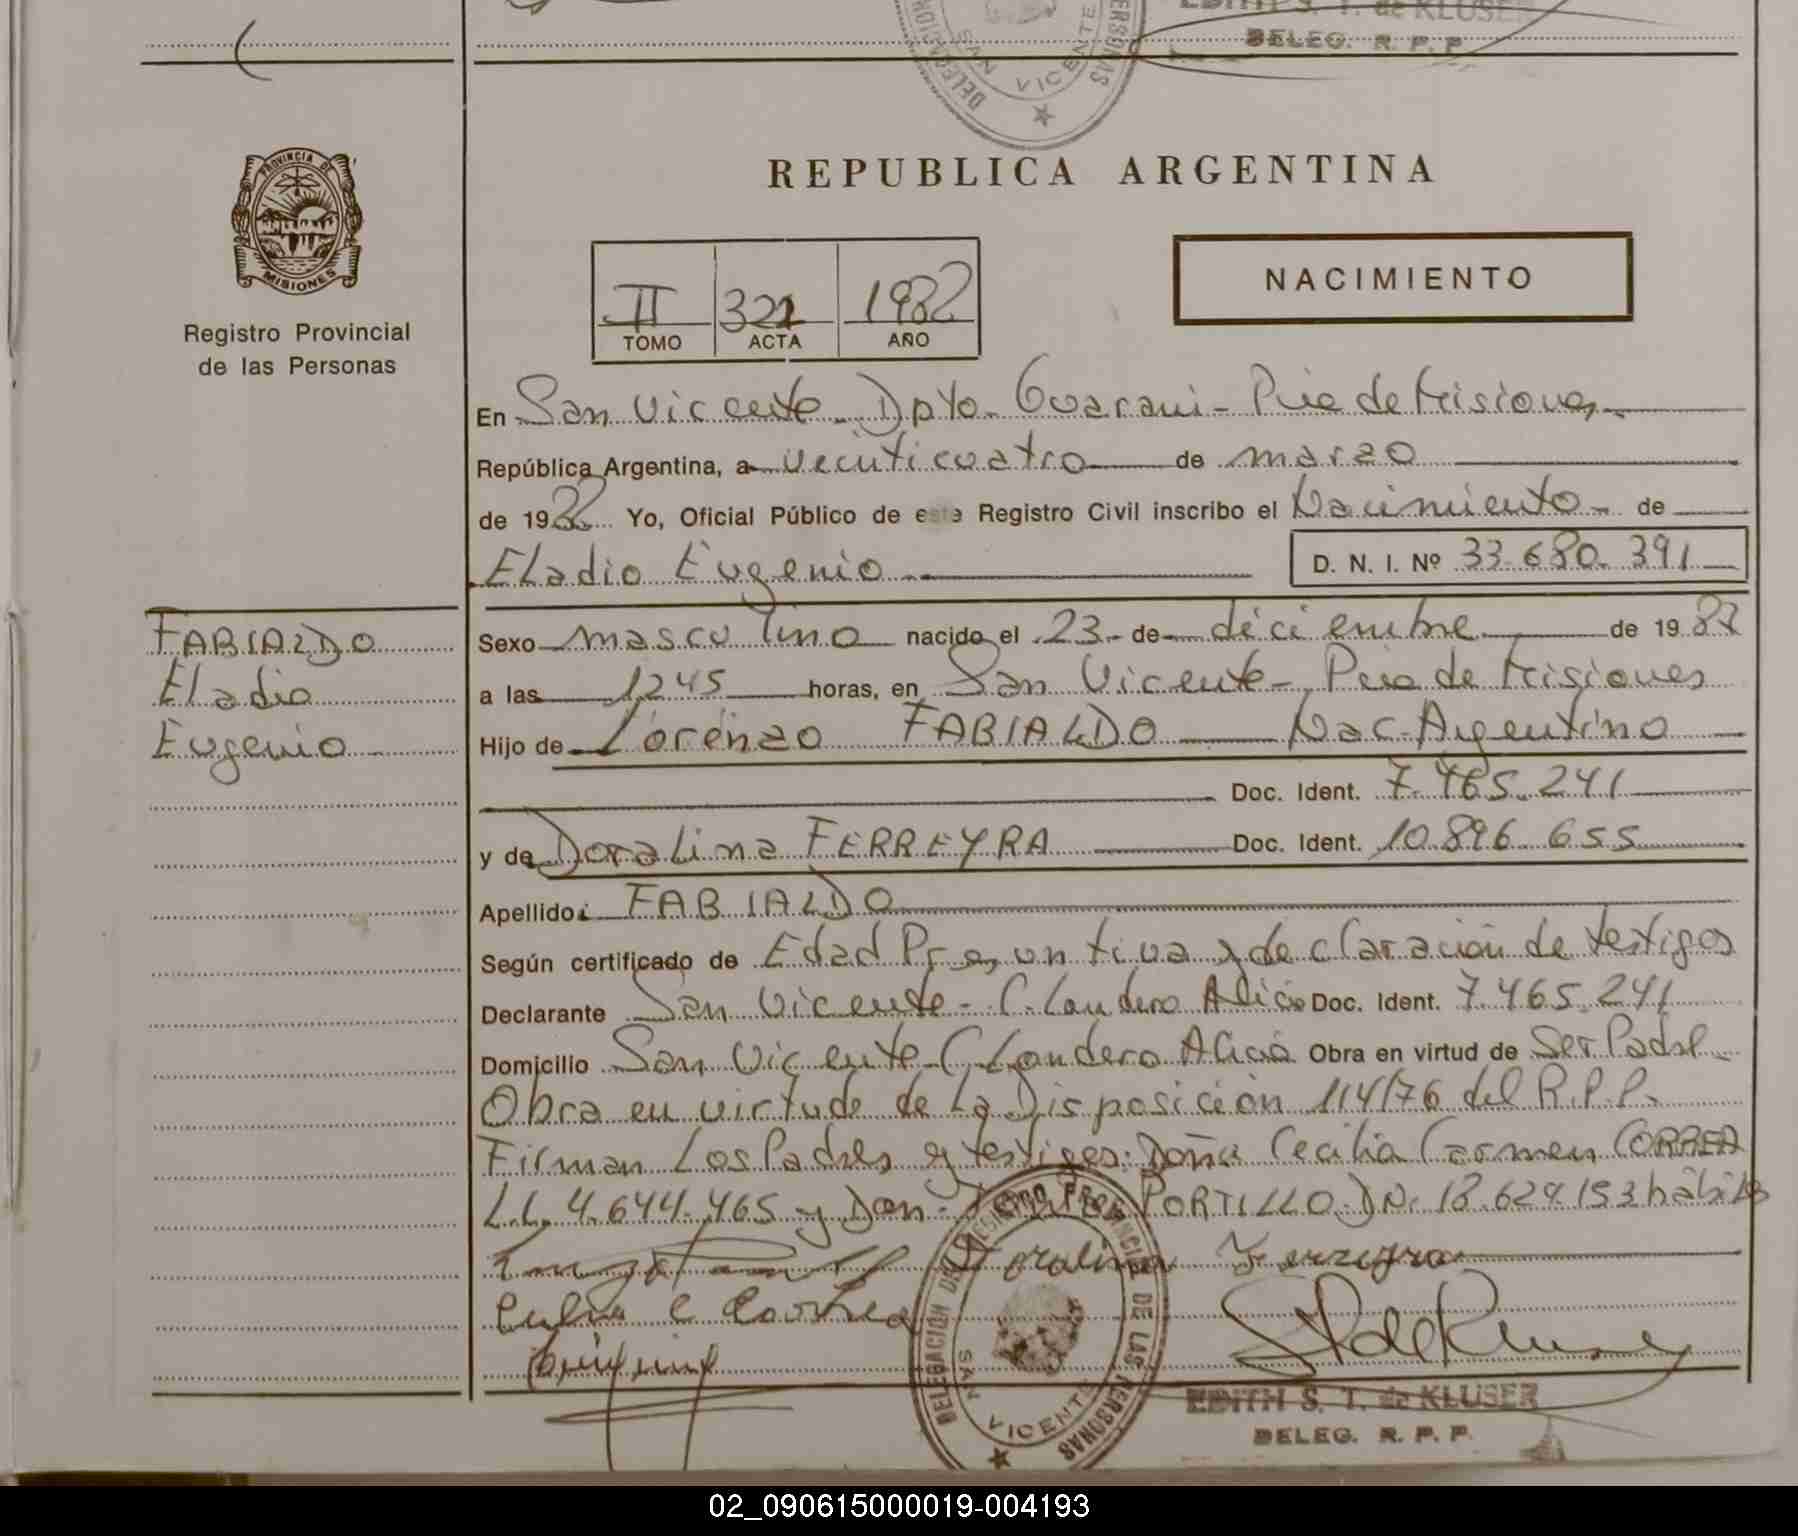 EDITH S. T. de KLUSER
DELEG. R. P. P.
SAN VICENTE
PROVINCIA DE
MISIONES
Registro Provincial
de las Personas
REPUBLICA ARGENTINA
NACIMIENTO
II 321
TOMO ACTA AÑO
En San Vicente Dpto. Guarani - Pcia de Misiones
República Argentina, a veinticuatro de marzo
de 19 Yo, Oficial Público de este Registro Civil inscribo el Nacimiento de
Eladio Eugenio D. N. I. Nº 33.680.391
FABIALDO
Eladio
Eugenio
Sexo masculino nacido el 23 de diciembre de 19
a las 1245 horas, en San Vicente - Pcia de Misiones
Hijo de Lorenzo FABIALDO Nac. Argentino
Doc. Ident. 7.465.241
y de Doralina FERREYRA Doc. Ident. 10.896.655
Apellido: FABIALDO
Según certificado de Edad Presuntiva y declaración de testigos
Declarante San Vicente - C. Landero Alicia Doc. Ident. 7.465.241
Domicilio San Vicente - C. Landero Alicia Obra en virtud de Ser Padre
Obra en virtude de la Disposición 114/76 del R.P.P.
Firman Los Padres y testigos: Doña Cecilia Carmen CORREA
L.C. 4.644.465 y Don PORTILLO D.N.I. 18.629.153 hábiles
Doralina Ferreyra
DELEGACION DEL REGISTRO PROVINCIAL DE LAS PERSONAS
SAN VICENTE
EDITH S. T. de KLUSER
DELEG. R. P. P.
02_090615000019-004193